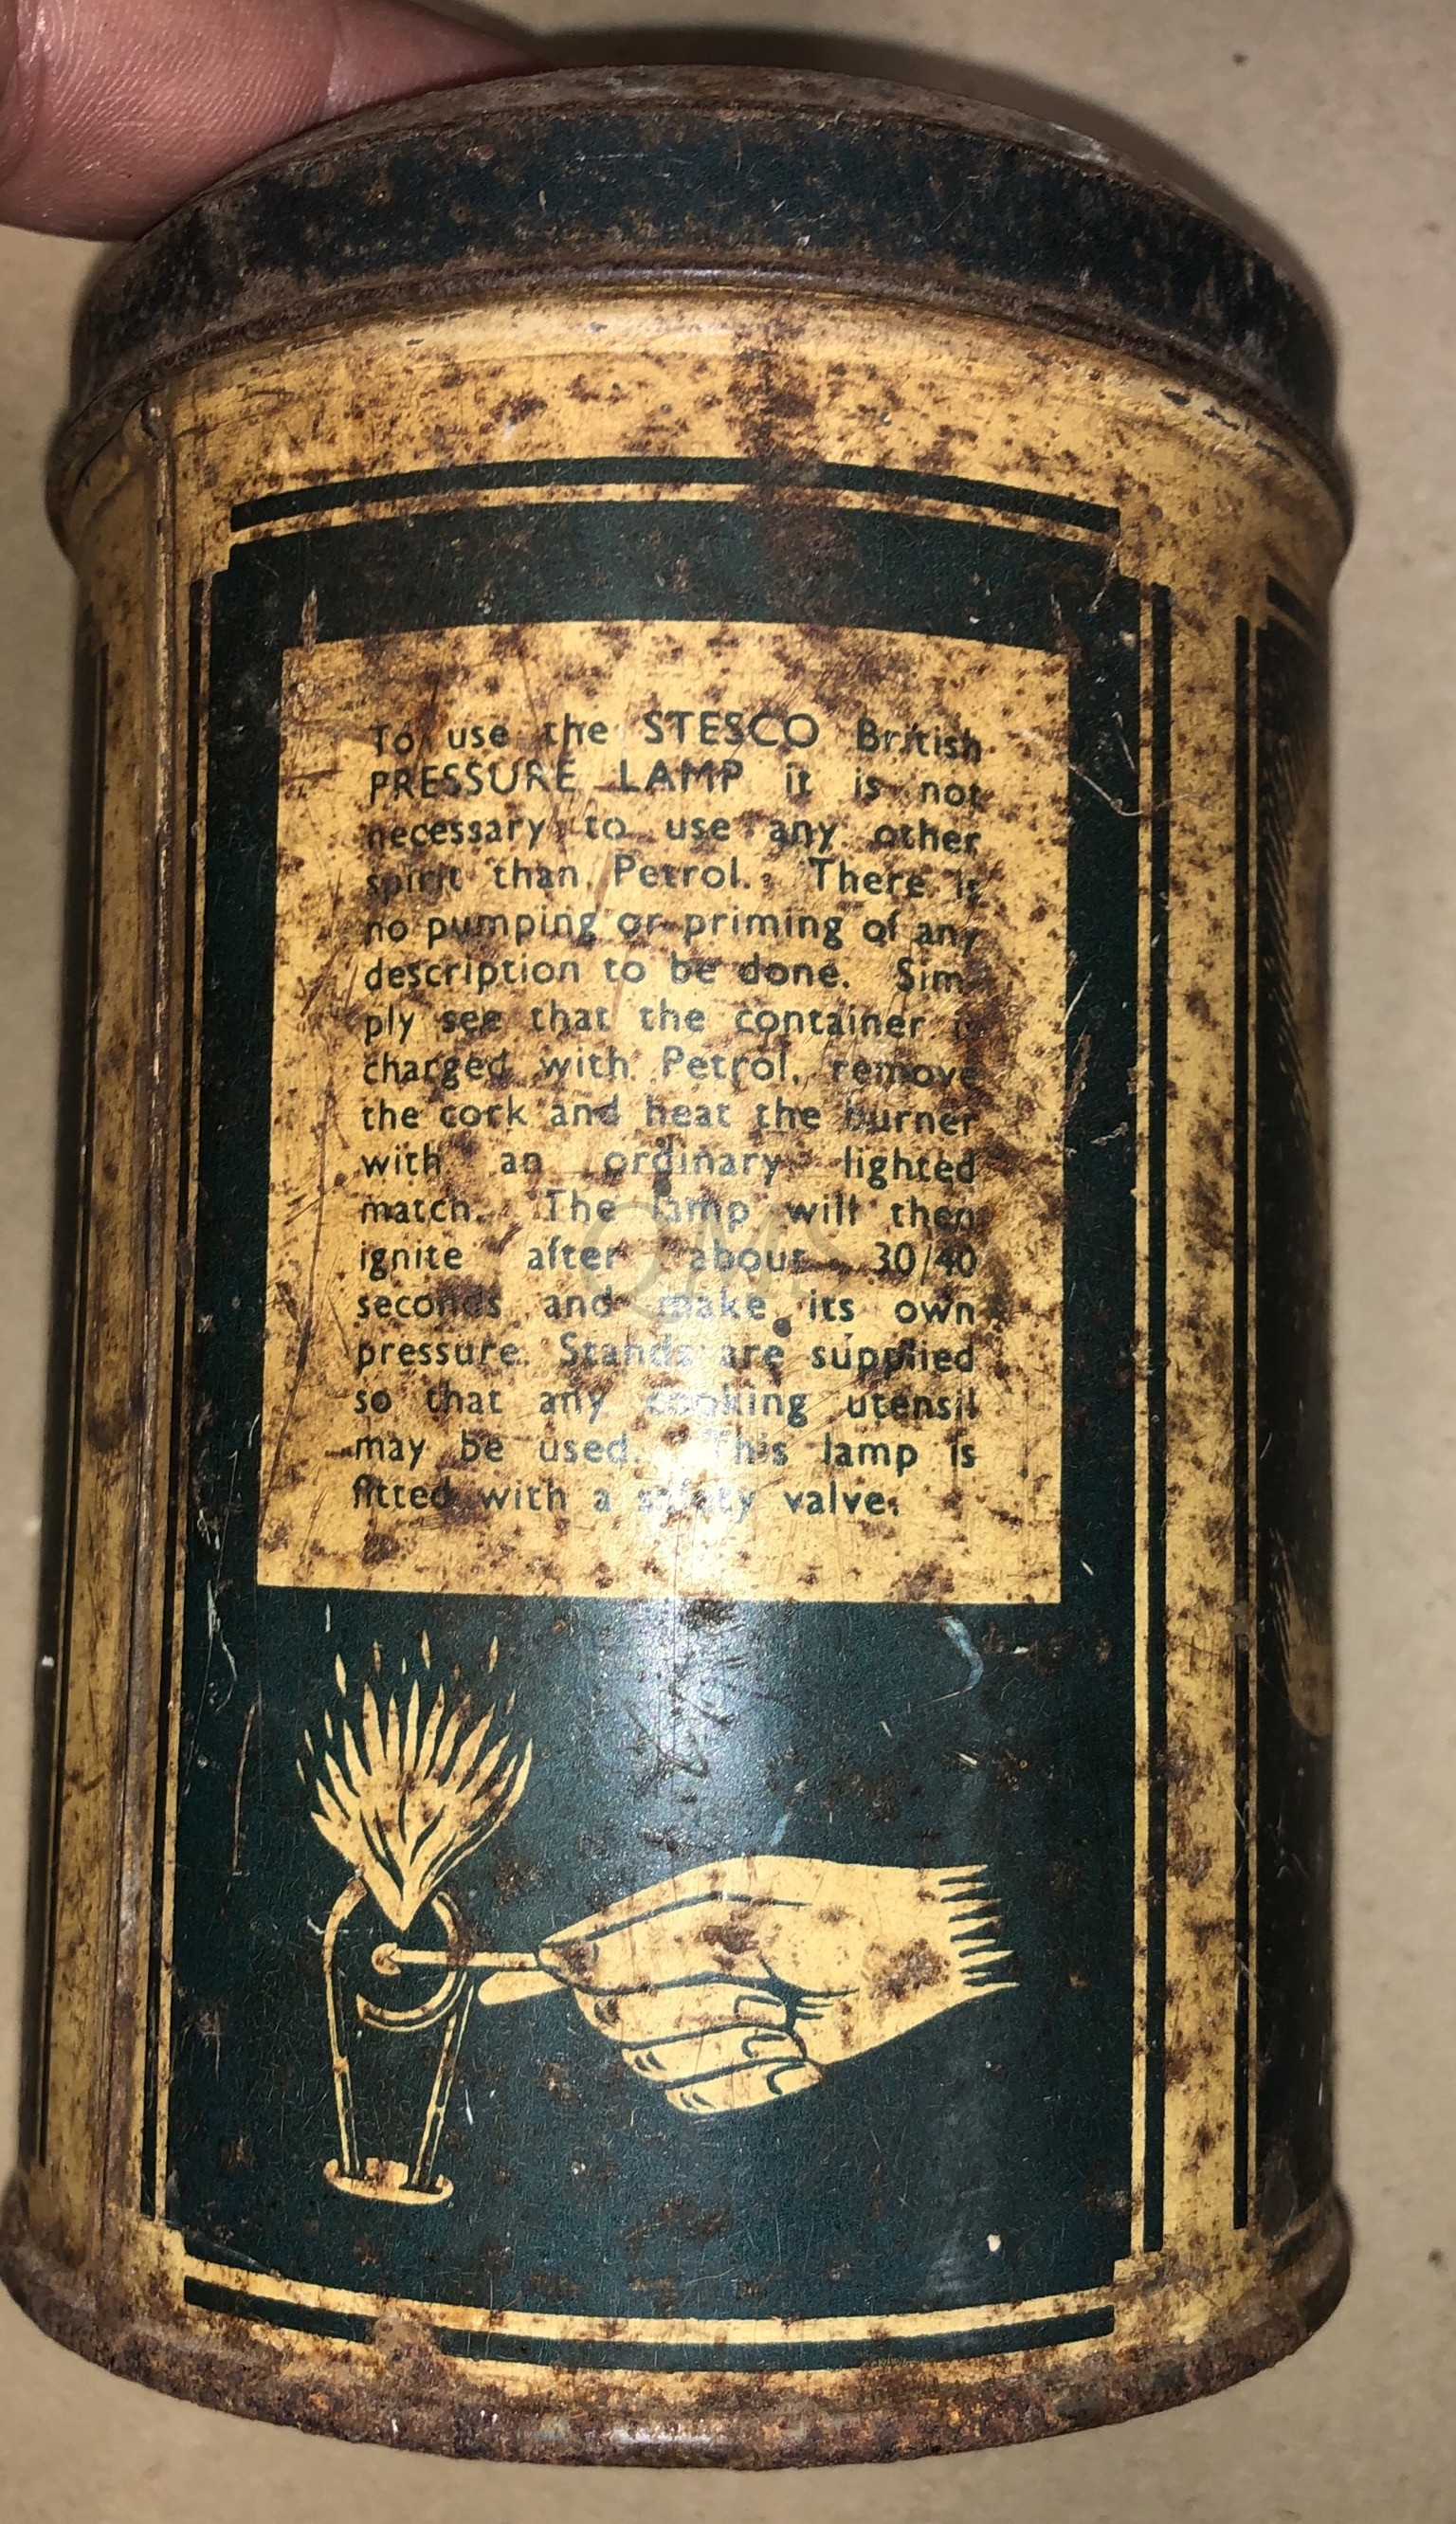 To use the STESCO British
PRESSURE LAMP it is not
necessary to use any other
spirit than Petrol. There is
no pumping or priming of any
description to be done. Sim-
ply see that the container is
charged with Petrol, remove
the cork and heat the burner
with an ordinary lighted
match. The lamp will then
ignite after about 30/40
seconds and make its own
pressure. Stands are supplied
so that any cooking utensil
may be used. This lamp is
fitted with a safety valve.
QMS